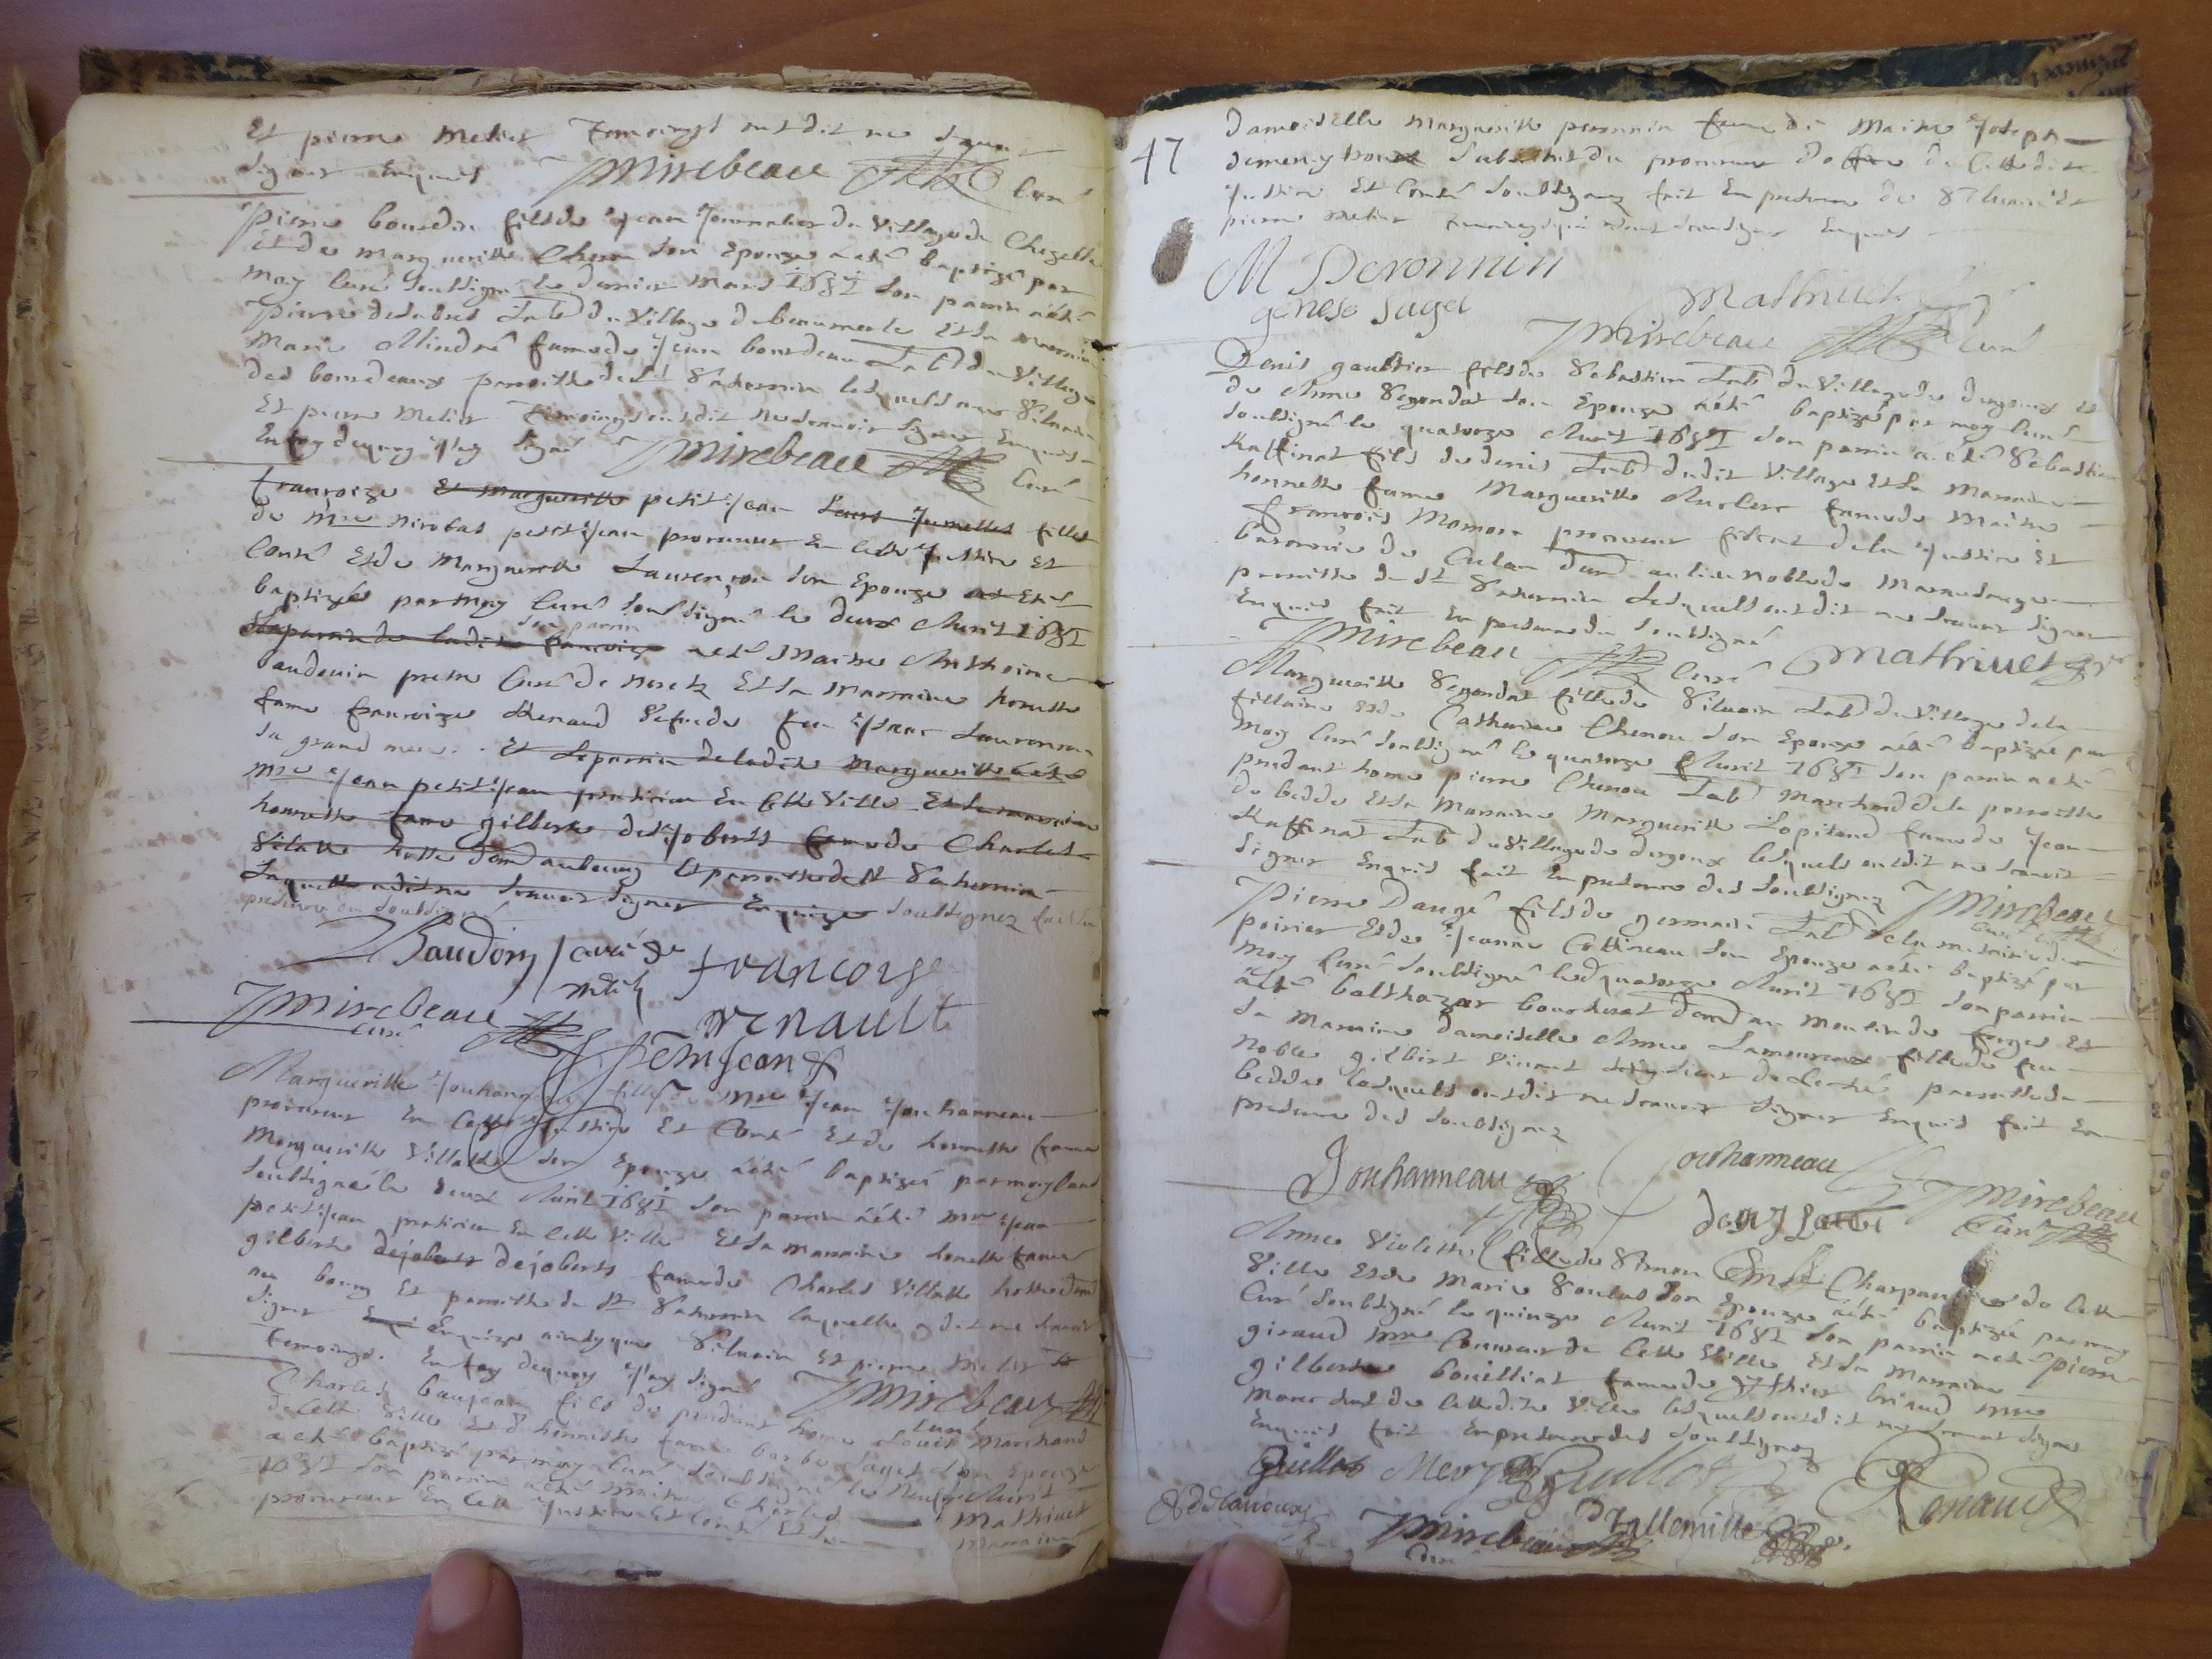 Et pierre Melier temoingst ont dit ne sauoir
signer Enquis JMirebeau Curé
Pierre bourdin fils de Jean Journalier du Village de Chezelle
Et de Margueritte Chenon son Epouze a été baptizé par
moy Curé soubsigné le dernier Mars 1681 son parin a été
Pierre desabres Lab du Village de beaumerle Et la marraine
Marie Mindré fame de Jean bourdeau Lab du Village
des bourdeaux parroisse de St Saturnin lesquels auec Siluain
Et pierre Melier temoingst ont dit ne scauoir signer Enquis
En foy dequoy J'ay signé JMirebeau Curé
francoize Et Margueritte petit Jean Seurs Jumelles filles
de Mre nicolas petit Jean procureur En cette Justice Et
Comté Et de Margueritte Laurençon son Epouze ont Eté
baptizée par Moy Curé soubsigné le deux Auril 1681
son parin
Le parrin de ladite francoize a eté Maitre Anthoine
baudouin pretre Curé de Et la Marraine honnette
fame francoize Renaud Vefue de feu Isaac Laurencon
sa grand mere. Et Le parrin de ladite Margueritte a été
Mre Jean petit Jean praticien En Cette Ville Et la marraine
honnette fame gilberte desjoberts fame de Charles
Vilatte hotte dem au bourg Et parroisse de St Saturnin
Laquelle a dit ne scauoir signer Enquize soubsignez fait En
presence du soubsigné
Baudoin curé de
francoise
JMirebeau
renault
curé
Petitjean
Margueritte Jouhanneau fille de Mre Jean Jouhanneau
procureur En Cette Justice Et Comté Et de honnette fame
Margueritte Villatte son Epouze a été baptizée par moy Curé
Soubsigné le deux Auril 1681 son parrin a été Mre Jean
petit Jean praticien En cette Ville Et la marraine honette fame
gilberte dejoberts dejoberts fame de Charles Villatte hotte dem
au bourg Et parroisse de St Saturnin laquelle a dit ne scauoir
signer Enquize ainsy que Siluain Et pierre Melier
temoingst. En foy dequoy J'ay signé JMirebeau
Curé
Charles baujean fils de prudant home Louis Marchand
de cette Ville Et d honnette fame barbe Saget son Epouze
a eté baptizé par moy Curé soubsigné le neuf Auril
1681 son parrin a été Maitre Charles Mathiuet
procureur En Cette Justice Et Comté Et la Marraine
47
damoiselle Margueritte peronnin fame de Maitre Joseph
substitut du procureur d office de Cette dite
Justice Et Comté soubsignez fait En presence de Siluain Et
pierre Melier temoingst qui n'ont sceu signer Enquis
M Peronnin
genese saget
Mathiuet
JMirebeau Curé
Denis gaultier fils de Sebastien Lab du Village de dregoux Et
de Anne Segondat son Epouze a été baptizé par moy Curé
soubsigné le quatorze Auril 1681 son parrin a eté Sebastien
Raffinat fils de denis Lab dudit Village Et la Marraine
honnette fame Margueritte Auclerc fame de Maitre
francois Momon procureur fiscal de la Justice Et
baronnie de Culan dem au lieu noble de
parroisse de St Saturnin Lesquels ont dit ne scauoir signer
Enquis fait En presence du soubsigné
JMirebeau Curé Mathiuet
Margueritte Segondat fille de Siluain Lab du Village de la
fillaine Et de Catherine Chenon son Epouze a été baptizée par
Moy Curé soubsigné le quatorze Auril 1681 son parrin a été
prudant home pierre Chenon Lab Marchand de la parroisse
de bedde Et la Marraine Margueritte Lopitand fame de Jean
Raffinat Lab du Village de dergoux lesquels ont dit ne scauoir
signer Enquis fait En presence des soubsignez JMirebeau
Pierre Dangé fils de germain Lab de la metairie des
poirier Et de Jeanne Cottineau son Epouze a été baptizé par
Moy Curé soubsigné led quatorze Auril 1681 son parrin
a été balthazar boucherat dem au Moulin de forges Et
la Marraine damoiselle Anne Lamoureux fille de feu
noble gilbert viuant parroisse de
bedde lesquels ont dit ne scauoir signer Enquis fait En
presence des soubsignez
Jouhanneau Jouhanneau
JMirebeau
Curé
Anne Violette fille de Simon Charpantier de Cette
Ville Et de Marie son Epouze a été baptizée par moy
Curé soubsigné le quinze Auril 1681 son parrin a été pierre
giraud Mre Couureur de Cette Ville Et la Marraine
gilberte bouilliat fame de briaud Mre
Marechal de Cette dite Ville lesquels ont dit ne scauoir signer
Enquis fait En presence des soubsignez
guillot Mery Guillot
Renaud
JMirebeau